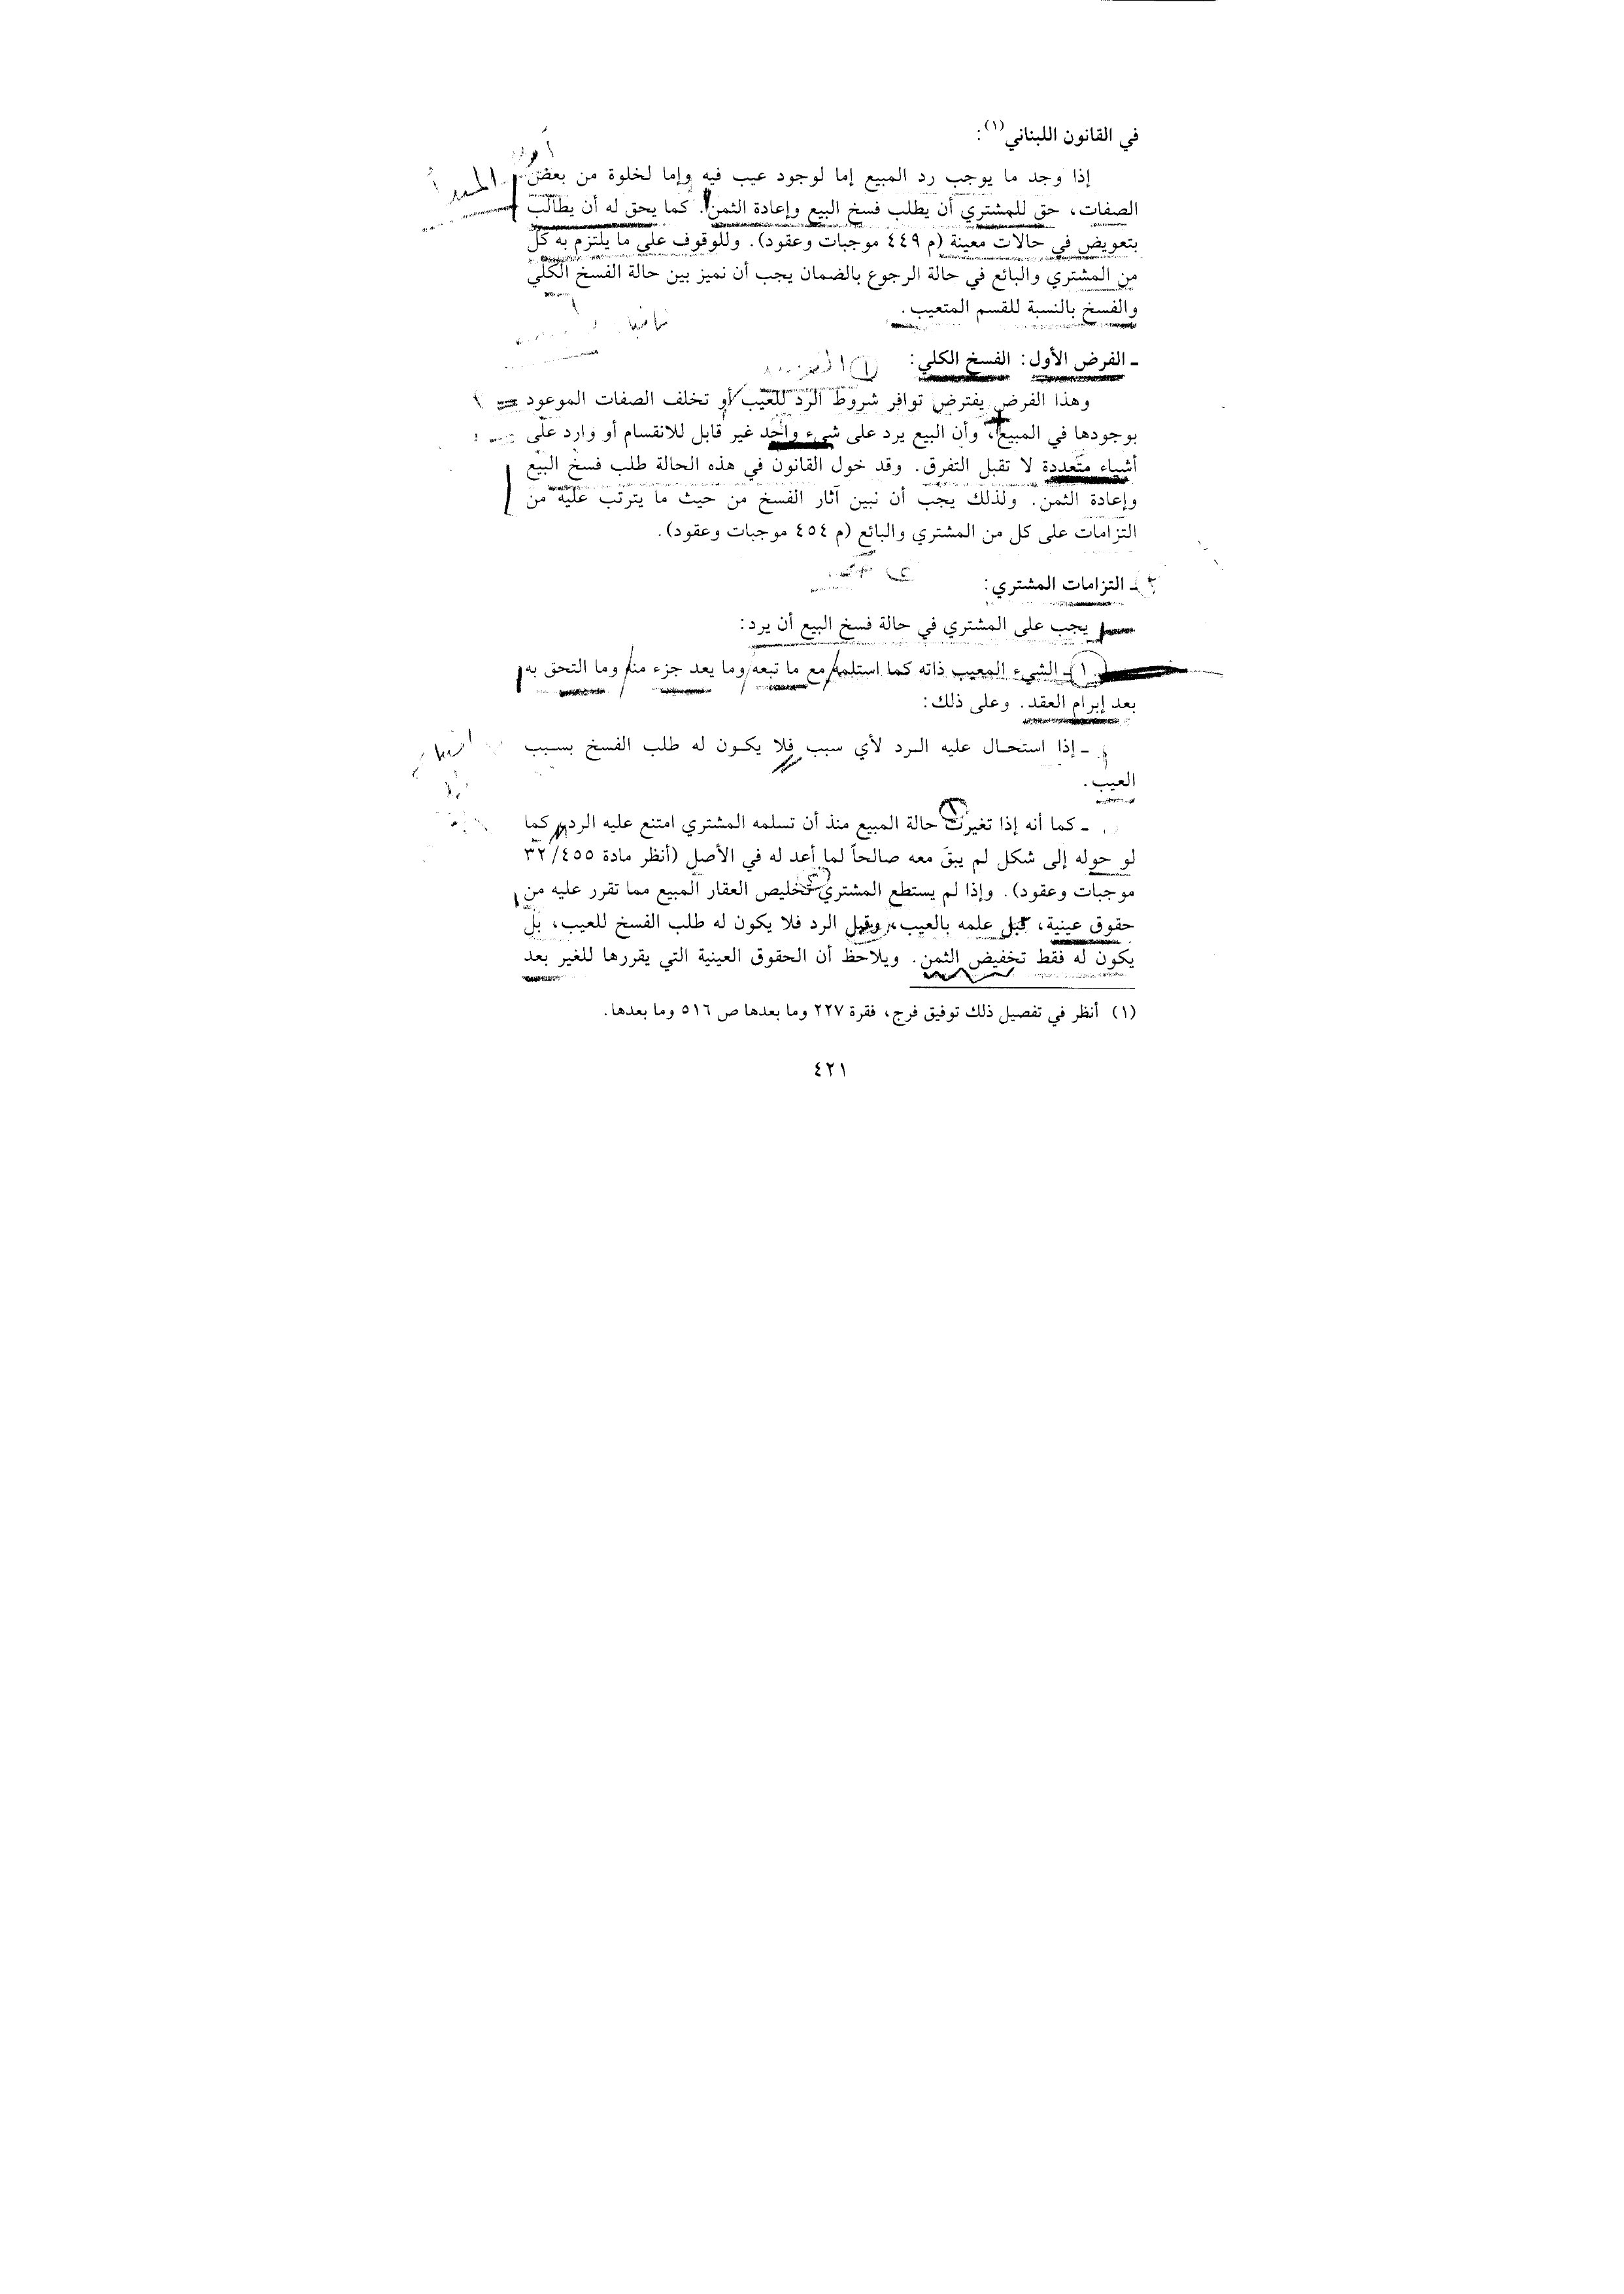 في القانون اللبناني(١):
إذا وجد ما يوجب رد المبيع إما لوجود عيب فيه وإما لخلوة من بعض
الصفات، حق للمشتري أن يطلب فسخ البيع وإعادة الثمن. كما يحق له أن يطالب
بتعويض في حالات معينة (م ٤٤٩ موجبات وعقود). وللوقوف على ما يلتزم به كل
من المشتري والبائع في حالة الرجوع بالضمان يجب أن نميز بين حالة الفسخ الكلي
والفسخ بالنسبة للقسم المتعيب.
ـ الفرض الأول: الفسخ الكلي:
وهذا الفرض يفترض توافر شروط الرد للعيب أو تخلف الصفات الموعود
بوجودها في المبيع، وأن البيع يرد على شيء واحد غير قابل للانقسام أو وارد على
أشياء متعددة لا تقبل التفرق. وقد خول القانون في هذه الحالة طلب فسخ البيع
وإعادة الثمن. ولذلك يجب أن نبين آثار الفسخ من حيث ما يترتب عليه من
التزامات على كل من المشتري والبائع (م ٤٥٤ موجبات وعقود).
ـ التزامات المشتري:
يجب على المشتري في حالة فسخ البيع أن يرد:
١ ـ الشيء المعيب ذاته كما استلمه مع ما تبعه وما يعد جزء منه وما التحق به
بعد إبرام العقد. وعلى ذلك:
ـ إذا استحال عليه الرد لأي سبب فلا يكون له طلب الفسخ بسبب
العيب.
ـ كما أنه إذا تغيرت حالة المبيع منذ أن تسلمه المشتري امتنع عليه الرد، كما
لو حوله إلى شكل لم يبقَ معه صالحاً لما أعد له في الأصل (أنظر مادة ٣٢/٤٥٥
موجبات وعقود). وإذا لم يستطع المشتري تخليص العقار المبيع مما تقرر عليه من
حقوق عينية، قبل علمه بالعيب، وقبل الرد فلا يكون له طلب الفسخ للعيب، بل
يكون له فقط تخفيض الثمن. ويلاحظ أن الحقوق العينية التي يقررها للغير بعد
(١) أنظر في تفصيل ذلك توفيق فرج، فقرة ٢٢٧ وما بعدها ص ٥١٦ وما بعدها.
٤٢١